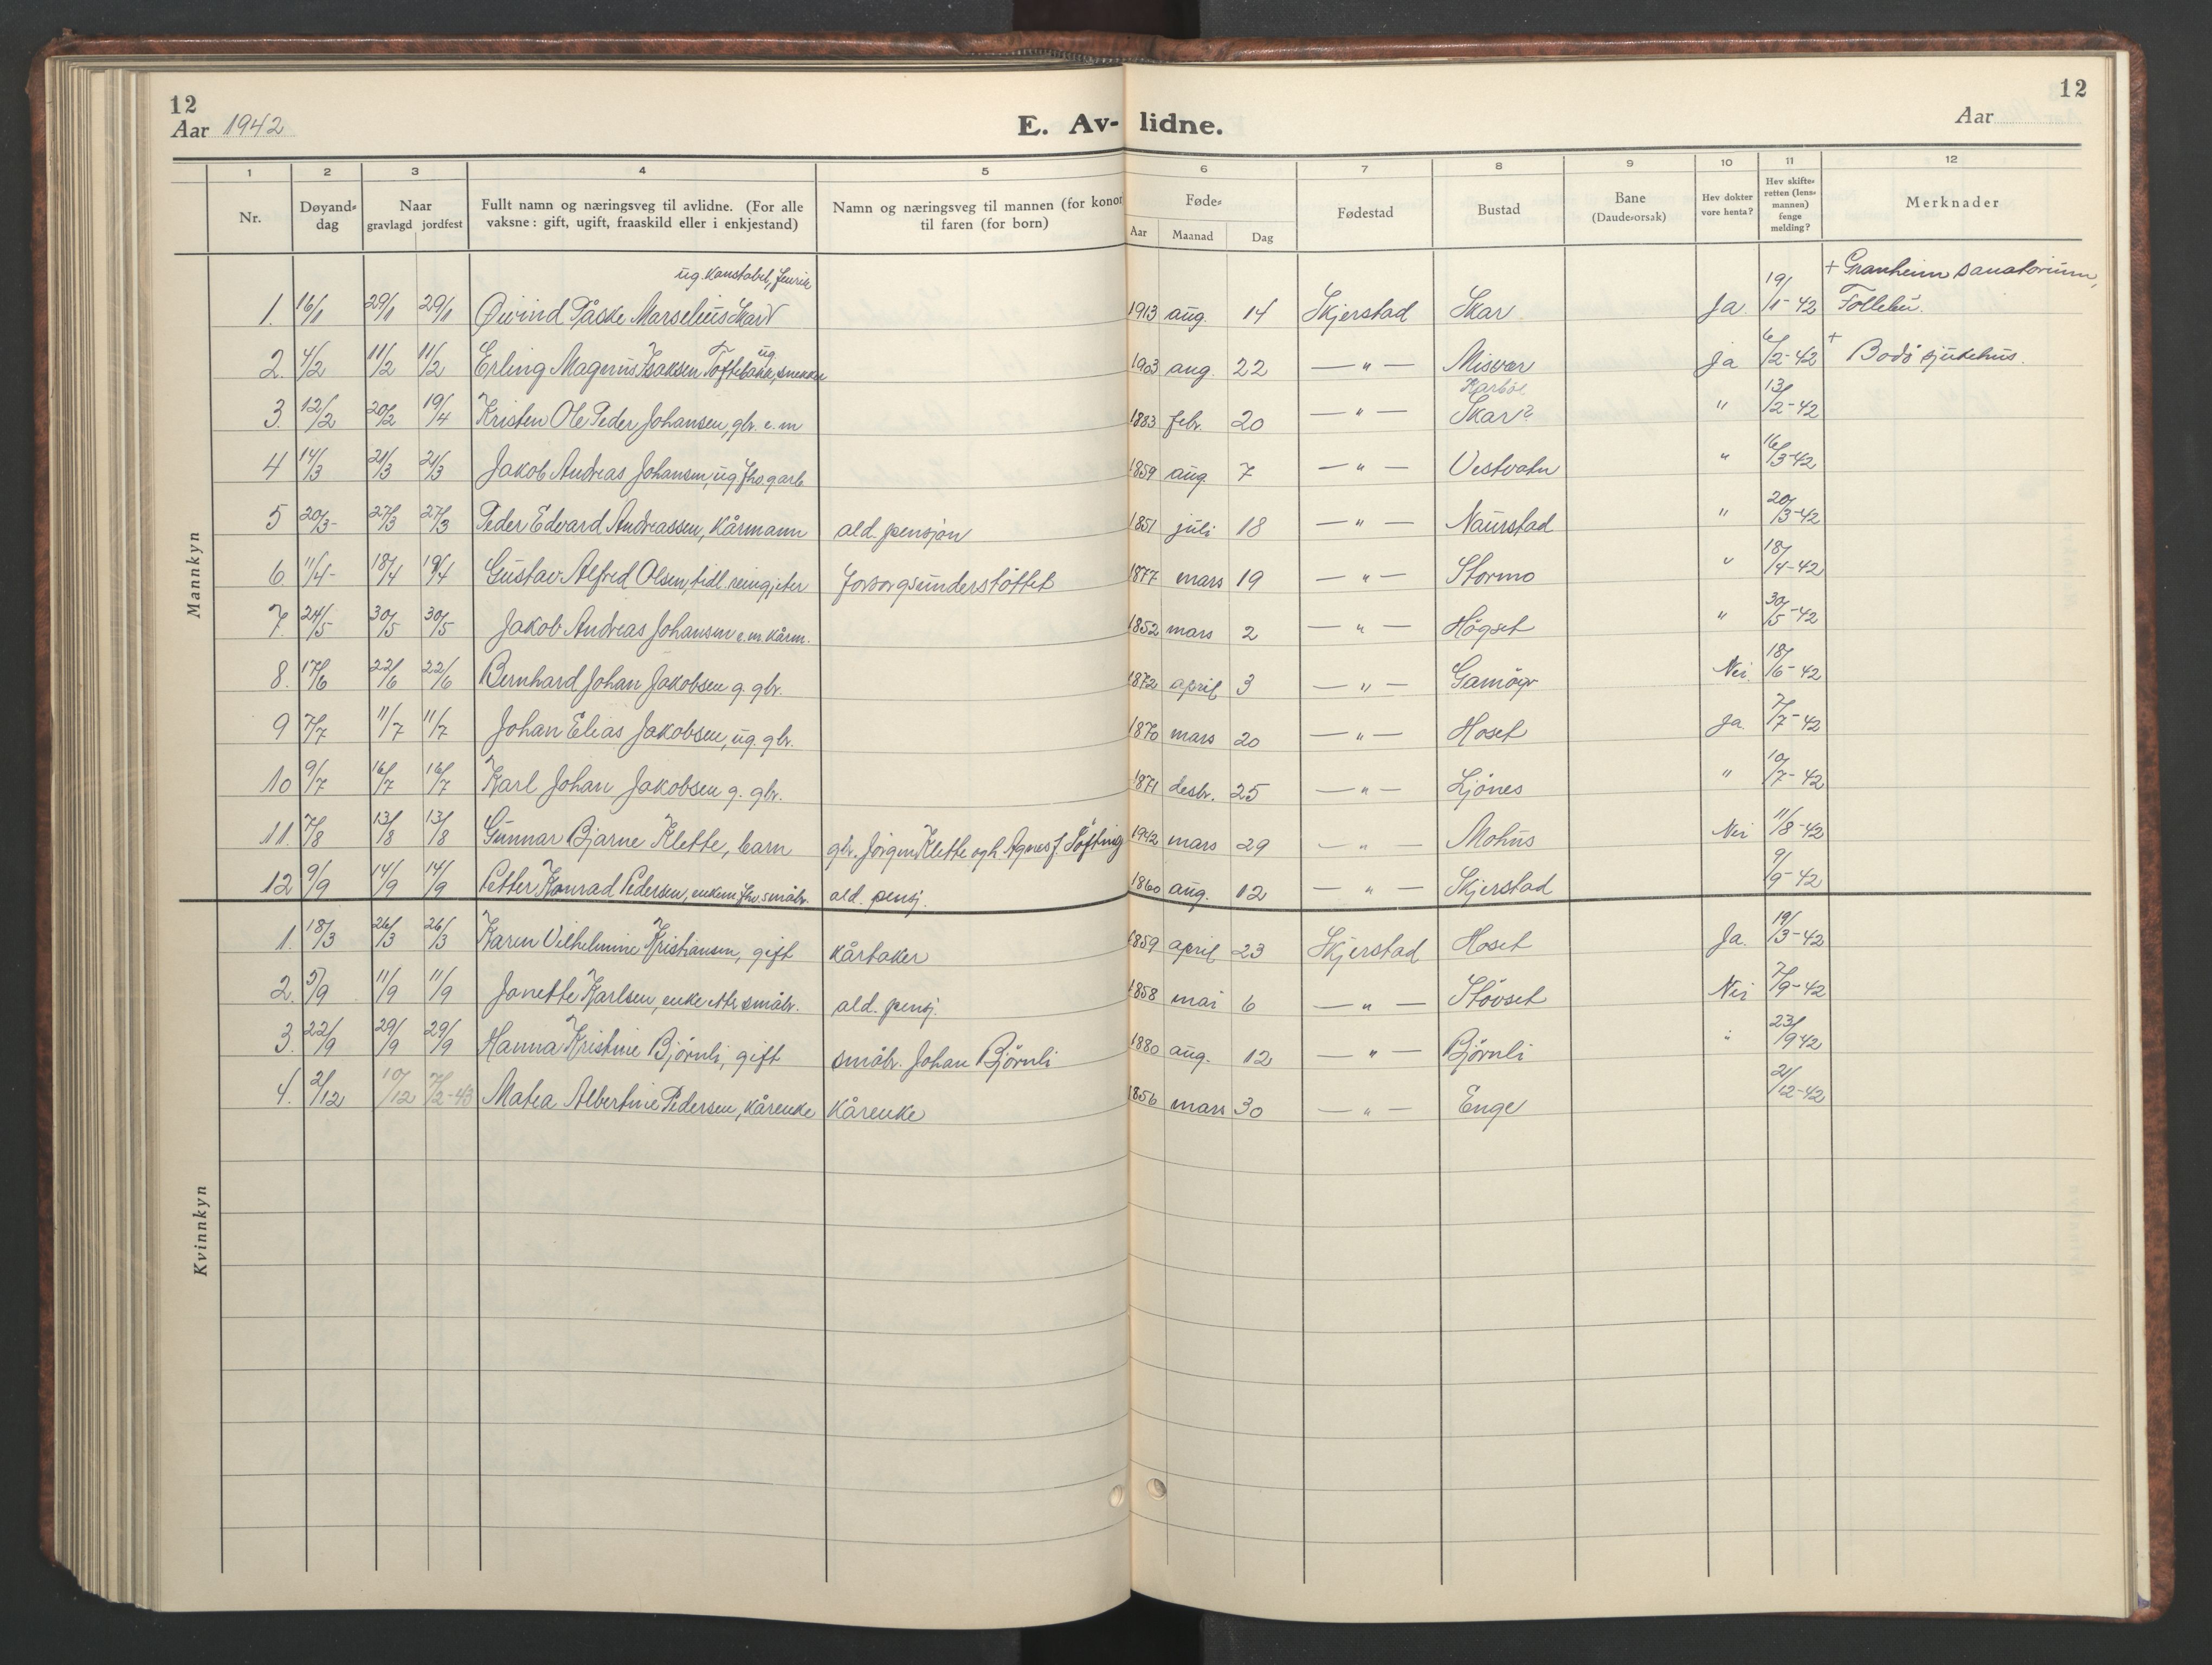 12
12
Aar 1942
E. Av-lidne.
Aar
1 2 3 4 5 6 7 8 9 10 11 12
Nr. Døyand-dag Naar gravlagd jordfest Fullt namn og næringsveg til avlidne. (For alle vaksne: gift, ugift, fraaskild eller i enkjestand) Namn og næringsveg til mannen (for konor til faren (for born) Føde- Aar Maanad Dag Fødestad Bustad Bane (Daudsorsak) Hev dokter vore henta? Hev skifteretten (lensmannen) fenge melding? Merknader
Mannkyn
ug. konstabel, + Granheim sanatorium,
1. 16/1 29/1 29/1 Øivind Påske Marselius Skar 1913 aug. 14 Skjerstad Skar Ja. 19/1-42 Follebu.
2. 4/2 11/2 11/2 Erling Magnus Isaksen Toftebakk, ug. snekker 1903 aug. 22 — " — Misvær Ja 6/2-42 + Bodö sjukehus.
3. 12/2 20/2 19/4 Kristen Ole Peder Johansen, gbr. e.m 1883 febr. 20 — " — Karbøl Skar? " 13/2-42
4 14/3 21/3 21/3 Jakob Andreas Johansen, ug. 1859 aug. 7 — " — Vestvatn " 16/3-42
5 20/3- 27/3 27/3 Peder Edvard Andreassen, kårmann ald. pensjon 1851 juli 18 — " — Naurstad " 20/3-42
6. 11/4- 18/4 19/4 Gustav Alfred Olsen, tidl. reingjeter forsorgsunderstöttet 1877 mars 19 — " — Stormo " 18/4-42
7. 24/5 30/5 30/5 Jakob Andreas Johansen e.m. kårm. 1852 mars 2 — " — Högset " 30/5-42
8. 17/6 22/6 22/6 Bernhard Johan Jakobsen g. gbr. 1872 april 3 — " — Gamöyr Nei. 18/6-42
9 7/7 11/7 11/7 Johan Elias Jakobsen, ug. gbr. 1870 mars 20 — " — Hoset Ja. 7/7-42
10 9/7 16/7 16/7 Karl Johan Jakobsen g. gbr. 1871 desbr. 25 — " — Ljönes " 10/7-42
11. 7/8 13/8 13/8 Gunnar Bjarne Klette, barn gbr. Jörgen Klette og h. Agnes f. Töfting 1942 mars 29 — " — Mohus Nei 11/8-42
12 9/9 14/9 14/9 Petter Konrad Pedersen, enkem. fhv. småbr. ald. pensj. 1860 aug. 12 — " — Skjerstad 9/9-42
Kvinnkyn
1. 18/3 26/3 26/3 Karen Vilhelmine Kristiansen, gift kårtaker 1859 april 23 Skjerstad Hoset Ja. 19/3-42
2. 5/9 11/9 11/9 Janette Karlsen, enke etter småbr. ald. pensj. 1858 mai 6 — " — Stövset Nei 7/9-42
3. 22/9 29/9 29/9 Hanna Kristine Björnli, gift småbr. Johan Björnli 1880 aug. 12 — " — Björnli " 23/9 42
4. 2/12 10/12 7/2-43 Matea Albertine Pedersen, kårenke kårenke 1856 mars 30 — " — Enge 2/12-42